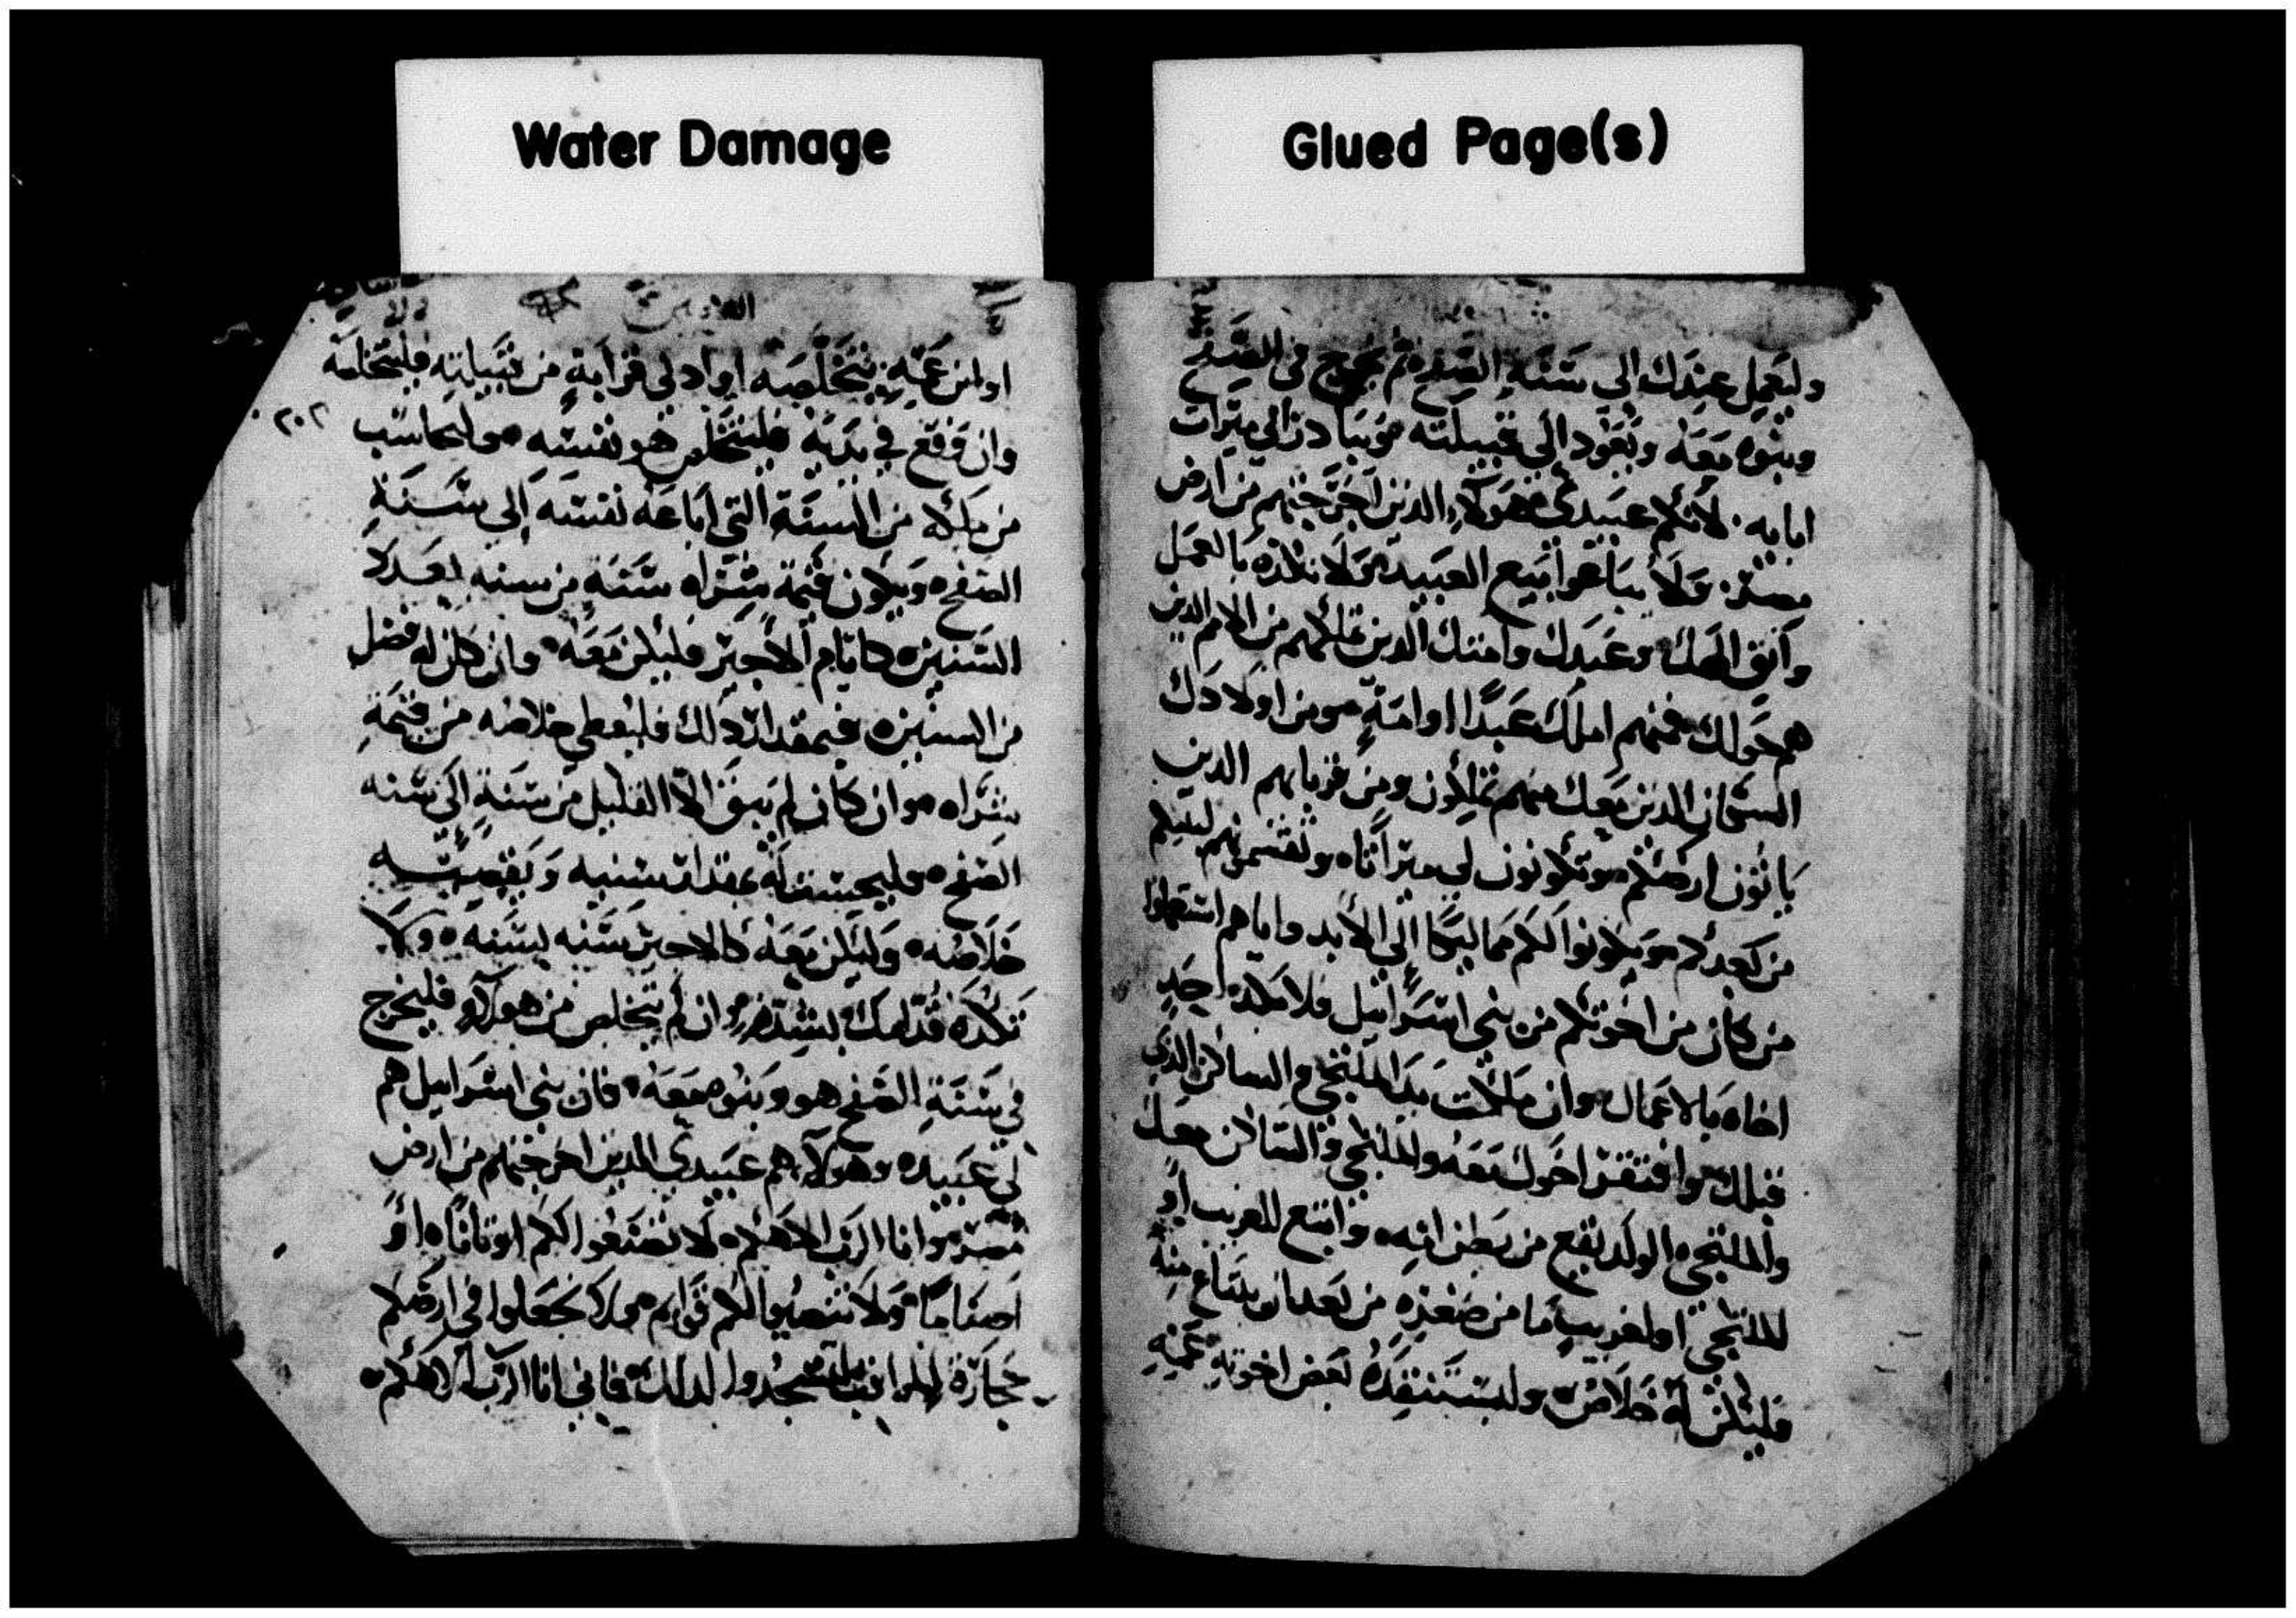 Water Damage
Glued Page(s)
وليعمل عندك الى سنة الصفح ثم يخرج في الصفح
وبنوه معه ويعود الى قبيلته ويبادر الى ميراث
ابايه لانكم عبيدي هولاء الذين اخرجتهم من ارض
مصر ولا يباعوا بيع العبيد ولا تكده بالعمل
واتق الهك وعبدك وامتك الذين تملكهم من الامم الذين
هم حولك فمنهم املك عبدا او امة ومن اولادك
السكان الذين معك منهم تملكون ومن قرباهم الذين
ارضكم ويكونون لي ميراثا وتقسمونهم لبنيكم
من بعدكم ويكونوا لكم مماليكا الى الابد واياهم استعملوا
من كان من اخوتكم من بني اسرائيل فلا يكده احد
اخاه بالاعمال وان ملكت يد الملتجي والساكن الذي
قبلك وافتقر اخوك معه والملتجي والساكن معك
والملتجي الولد يقع من بطن امه وابتع للغريب او
للملتجي او لغريب ما من بعد ان يبتاع منه
فليكن له خلاص وليستنقده بعض اخوته عمه
او ابن عمه يتخلصه او ادنى قرابة من قبيلته فليتخلصه
وان وقع في يديه فليتخلص هو نفسه وليحاسب
٢٠٢
من ملكه من السنة التي اباعه نفسه الى سنة
الصفح ويكون قيمة شراه سنة من سنه بعدد
السنين كايام الاجير فليكن معه وان كان له فضل
من السنين فبمقدار ذلك فليعطي خلاصه من قيمة
شراه وان كان لم يبق الا القليل من سنة الى سنه
الصفح وليحسب له بمقدار سنيه
خلاصه وليكن معه كالاجير سنه بسنه ولا
تكده قدامك بشدة وان لم يتخلص من هولاء فليخرج
في سنة الصفح هو وبنوه معه فان بني اسرائيل هم
لي عبيد وهولاء هم عبيدي الذين اخرجتهم من ارض
مصر وانا الرب الاهكم لا تصنعوا لكم اوثانا او
اصناما ولا تنصبوا لكم قوايم ولا تجعلوا في ارضكم
حجارة لتسجدوا لذلك فاني انا الرب الاهكم